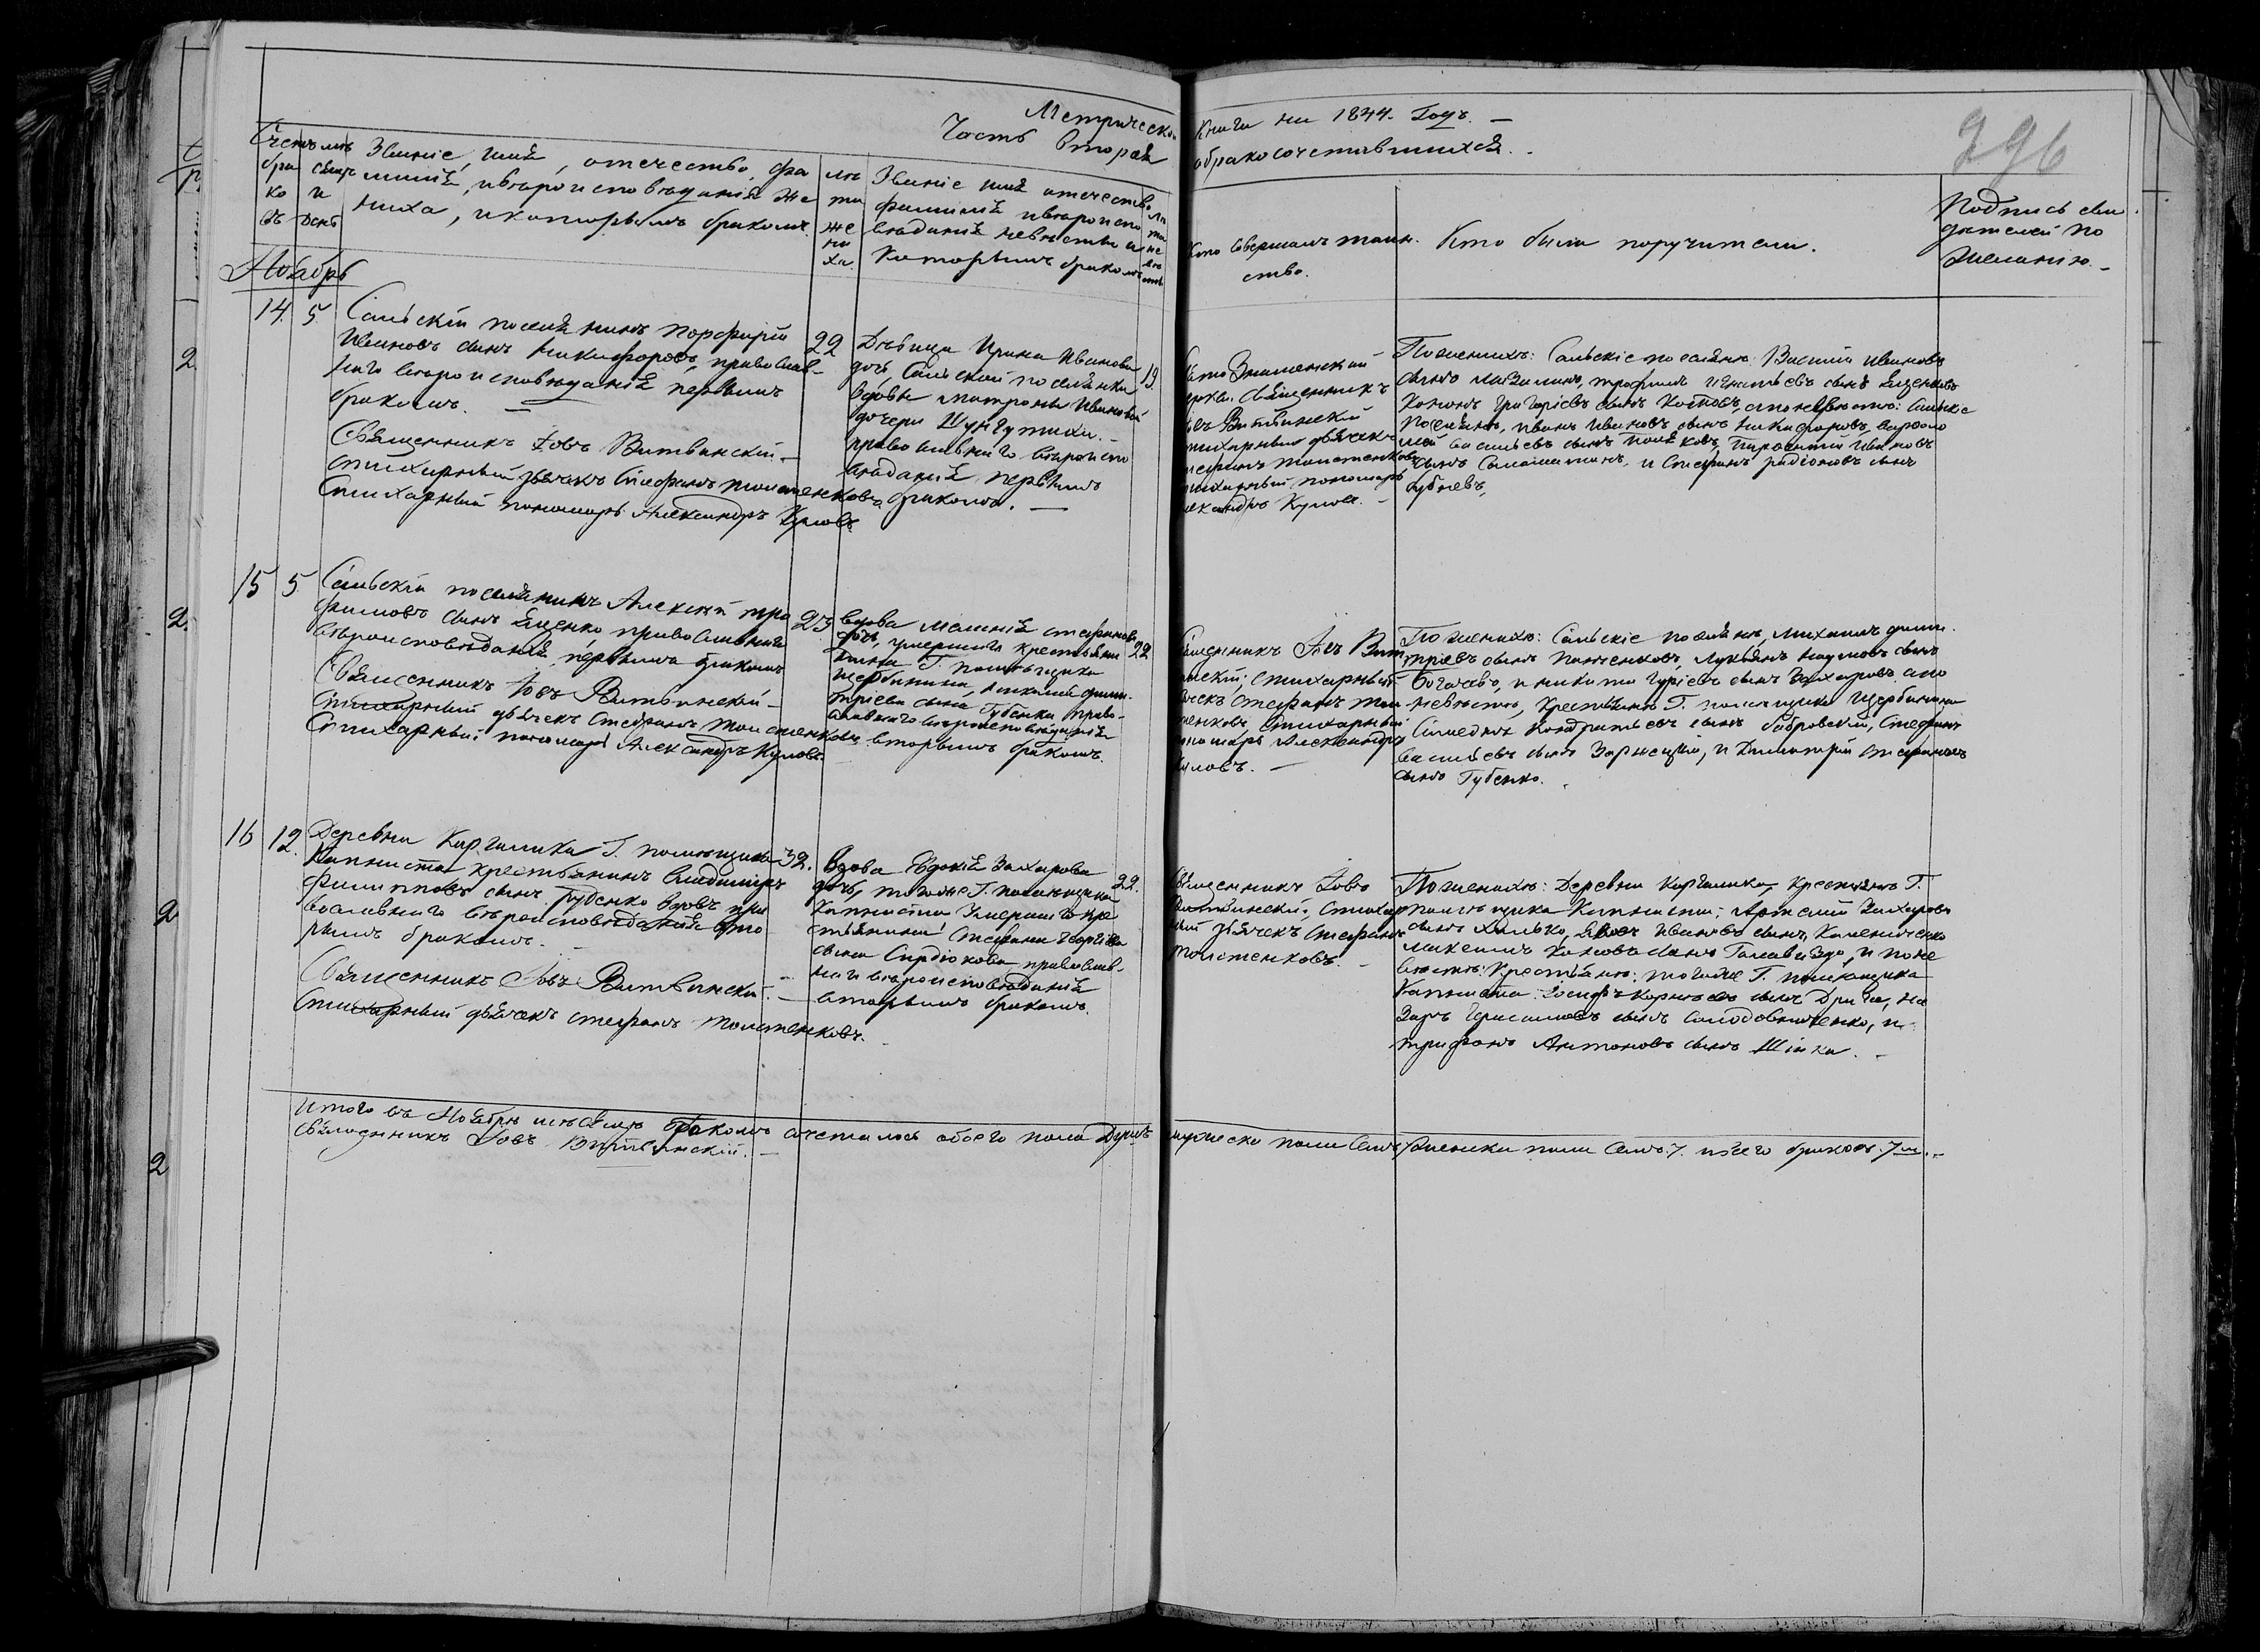 Метрической
Часть вторая
Книги на 1844. Годъ.
обракосочетавшихся.
296
Счетъ бра ко въ
Мѣсяцъ и день
Званіе, имя, отечество, фа
милія, ивѣроисповѣданія Же
ниха, икоторымъ бракомъ
лѣ
та
же
ни
ха.
Званіе имя отечество
фамилія ивѣроиспо
вѣданія невѣсты и
которымъ бракомъ
лѣ
та
не
вѣ
сты
Кто совершалъ таин
ство.
Кто были поручители.
Подпись сви
дѣтелей по
Желанію.
Ноябрь
14. 5.
Сальскій поселянинъ Порфирій
Ивановъ сынъ Никифоровъ, православ-
наго вѣроисповѣданія первымъ
бракомъ.
Священникъ Іовъ Витвинскій
Стихарный дьячекъ Стефанъ Толстенковъ
Стихарный пономарь Александръ Куловъ
22
Дѣвица Ирина Иванова
дочь, Сальской поселянки
вдовы Матроны Ивановой
дочери Шунгутихи.
православнаго вѣроиспо
вѣданія первымъ
бракомъ.
19
Знаменской
церкви Священникъ
Іовъ Витвинскій
стихарный дьячекъ
Стефанъ Толстенковъ
стихарный пономарь
Александръ Куловъ.
Поженихѣ: Сальскіе поселяне Василій Ивановъ
сынъ Мазалинъ, трофимъ Игнатьевъ сынъ Яценковъ
Кононъ Григорьевъ сынъ Костовъ, апоневѣстѣ: Сальскіе
поселяне, Иванъ Ивановъ сынъ Никифоровъ, варфоло
мей васильевъ сынъ Поляковъ, Тарасій Ивановъ
сынъ Саламатинъ, и Стефанъ радіоновъ сынъ
Зубневъ,
15 5
Сальскій поселянинъ Алексѣй тро
фимовъ сынъ Яценко православнаго
вѣроисповѣданія, первымъ бракомъ
Священникъ Іовъ Витвинскій
Стихарный дьячекъ Стефанъ Толстенковъ
Стихарный пономарь Александръ Куловъ
23
вдова Меланія стефанова
дочь, умершаго крестьяни
на Г. помѣщика
Щербинина, дими-
тріева сына Губенка право-
славнаго вѣроисповѣданія
вторымъ бракомъ.
22
Священникъ Іовъ Вит
винскій; стихарный
дьячекъ Стефанъ Тол
стенковъ, Стихарный
пономарь Александръ
Куловъ.
Поженихѣ: Сальскіе поселяне, Михаилъ дими-
тріевъ сынъ Панченковъ, Лукьянъ Наумовъ сынъ
Богачевъ, и никита Гурьевъ сынъ Захаровъ. апо
невѣстѣ, Крестьяне Г. помѣщика Щербинина
Кондратьевъ сынъ бобровскій, Стефанъ
васильевъ сынъ Зарнецкій, и Димитрій стефановъ
сынъ Губенко.
16 12.
Деревни Каргалика Г. помѣщика
Капниста крестьянинъ Владимиръ
Филипповъ сынъ Руденко вдовъ пра
вославнаго вѣроисповѣданія вто
рымъ бракомъ.
Священникъ Іовъ Витвинскій.
Стихарный дьячекъ стефанъ Толстенковъ.
32.
Вдова Евдокія Захарова
дочь, тогоже Г. помѣщика
Капниста Умершаго кре
стьянина Стефана Георгіева
сына Сердюкова православ-
наго вѣроисповѣданія
вторымъ бракомъ.
22.
Священникъ Іовъ
Витвинскій; стихар
ный дьячекъ Стефанъ
Толстенковъ.
Поженихѣ: Деревни Каргалика, Крестьяне Г.
помѣщика Капниста; Артемій Захаровъ
сынъ Халько, Яковъ Ивановъ сынъ, Калениченко
сынъ и поне
вѣстѣ: Крестьяне: тогоже Г. помѣщика
Капниста: Іосифъ Карнѣевъ сынъ Дрига, На
заръ Герасимовъ сынъ Солодовниченко, и
трифонъ Антоновъ сынъ Шінка.
Итого въ Ноябрѣ мѣсяцѣ бракомъ сочеталось обоего пола Душъ мужеска пола Семь 7. женска пола Семь. 7. ивсего браковъ. 7м.
Священникъ Іовъ Витвинскій.
2
2.
2
2